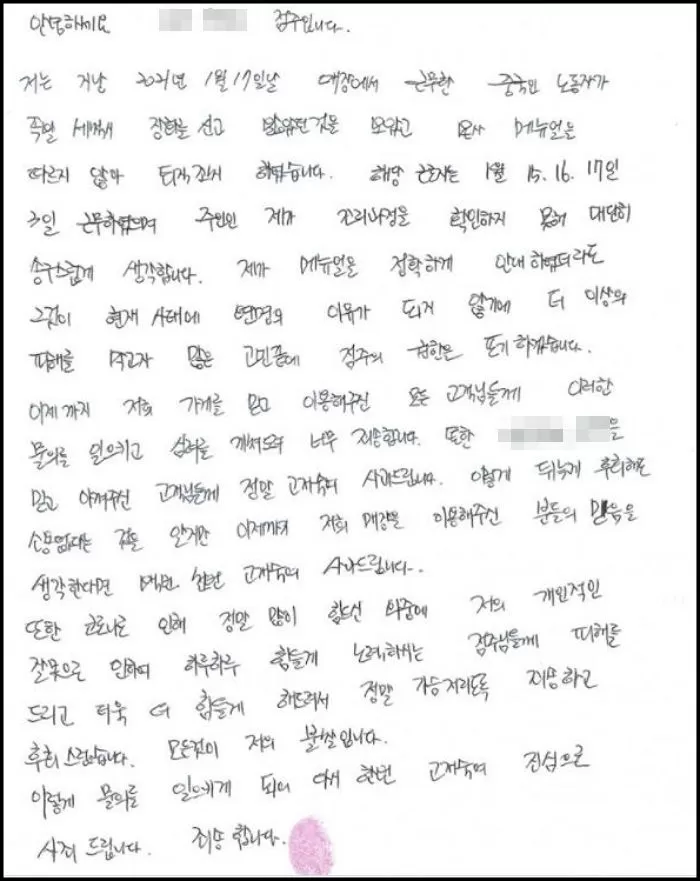 안녕하세요 점주입니다.
저는 지난 2021년 1월 17일날 매장에서 근무한 중국인 노동자가
족발 세척시 장화를 신고 밟았던것을 보았고 본사 메뉴얼을
따르지 않아 퇴직조치 하였습니다. 해당 근로자는 1월 15. 16. 17일
3일 근무하였으며 주인인 제가 조리과정을 확인하지 못해 대단히
송구스럽게 생각합니다. 제가 메뉴얼을 정확하게 안내 하였더라도
그것이 현재 사태에 변명의 이유가 되지 않기에 더 이상의
피해를 막고자 많은 고민끝에 점주의 권한은 포기 하겠습니다.
이제까지 저희 가게를 믿고 이용해주신 모든 고객님들께 이러한
물의를 일으키고 심려를 끼쳐드려 너무 죄송합니다. 또한 을
믿고 아껴주신 고객님들께 정말 고개숙여 사과드립니다. 이렇게 뒤늦게 후회해도
소용없다는 것을 알지만 이제까지 저희 매장을 이용해주신 분들의 믿음을
생각한다면 백번 천번 고개숙여 사과드립니다.
또한 코로나로 인해 정말 많이 힘드신 와중에 저의 개인적인
잘못으로 인하여 하루하루 힘들게 노력하시는 점주님들께 피해를
드리고 더욱 더 힘들게 해드려서 정말 가슴저리도록 죄송하고
후회 스럽습니다. 모든것이 저의 불찰입니다.
이렇게 물의를 일으키게 되어 다시 한번 고개숙여 진심으로
사죄 드립니다. 죄송 합니다.